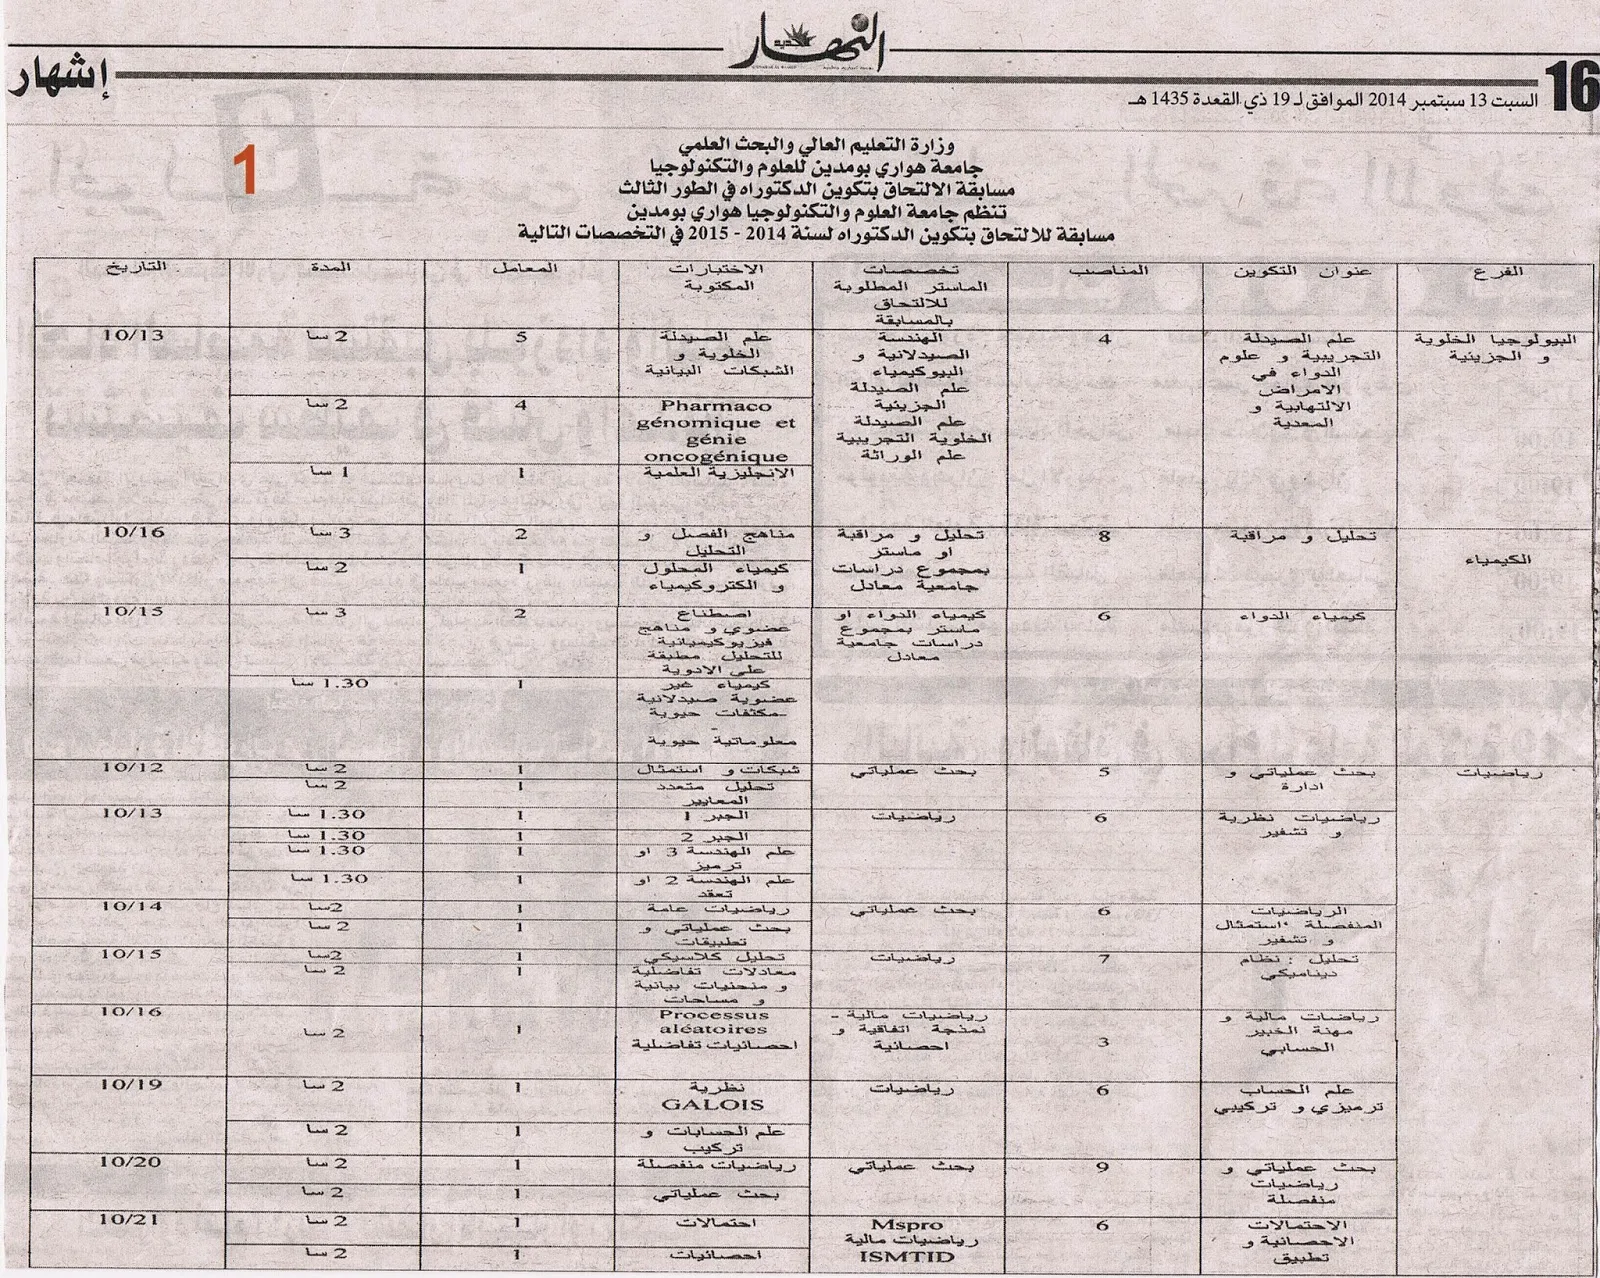 النهار
16
السبت 13 سبتمبر 2014 الموافق لـ 19 ذي القعدة 1435 هـ
إشهار
1
وزارة التعليم العالي والبحث العلمي
جامعة هواري بومدين للعلوم والتكنولوجيا
مسابقة الالتحاق بتكوين الدكتوراه في الطور الثالث
تنظم جامعة العلوم والتكنولوجيا هواري بومدين
مسابقة للالتحاق بتكوين الدكتوراه لسنة 2014 - 2015 في التخصصات التالية
الفرع
عنوان التكوين
المناصب
تخصصات
الماستر المطلوبة
للالتحاق
بالمسابقة
الاختبارات
المكتوبة
المعامل
المدة
التاريخ
البيولوجيا الخلوية
و الجزينية
علم الصيدلة
التجريبية و علوم
الدواء في
الامراض
الالتهابية و
المعدية
4
الهندسة
الصيدلانية و
البيوكيمياء
علم الصيدلة
الجزينية
علم الصيدلة
الخلوية التجريبية
علم الوراثة
علم الصيدلة
الخلوية و
الشبكات البيانية
5
2 سا
10/13
Pharmaco
génomique et
génie
oncogénique
4
2 سا
الانجليزية العلمية
1
1 سا
الكيمياء
تحليل و مراقبة
8
تحليل و مراقبة
او ماستر
بمجموع دراسات
جامعية معادل
مناهج الفصل و
التحليل
2
3 سا
10/16
كيمياء المحلول
و الكتروكيمياء
1
2 سا
كيمياء الدواء
6
كيمياء الدواء او
ماستر بمجموع
دراسات جامعية
معادل
اصطناع
عضوي و مناهج
فيزيوكيميائية
للتحليل مطبقة
على الادوية
2
3 سا
10/15
كيمياء غير
عضوية صيدلانية
-مكثفات حيوية
-
معلوماتية حيوية
1
1.30 سا
رياضيات
بحث عملياتي و
ادارة
5
بحث عملياتي
شبكات و استمثال
1
2 سا
10/12
تحليل متعدد
المعايير
1
2 سا
رياضيات نظرية
و تشفير
6
رياضيات
الجبر 1
1
1.30 سا
10/13
الجبر 2
1
1.30 سا
علم الهندسة 3 او
ترميز
1
1.30 سا
علم الهندسة 2 او
تعقد
1
1.30 سا
الرياضيات
المنفصلة، استمثال
و تشفير
6
بحث عملياتي
رياضيات عامة
1
2سا
10/14
بحث عملياتي و
تطبيقات
1
2 سا
تحليل : نظام
ديناميكي
7
رياضيات
تحليل كلاسيكي
1
2سا
10/15
معادلات تفاضلية
و منحنيات بيانية
و مساحات
1
2 سا
رياضيات مالية و
مهنة الخبير
الحسابي
3
رياضيات مالية -
نمذجة اتفاقية و
احصائية
Processus
aléatoires
احصائيات تفاضلية
1
2 سا
10/16
علم الحساب
ترميزي و تركيبي
6
رياضيات
نظرية
GALOIS
1
2 سا
10/19
علم الحسابات و
تركيب
1
2 سا
بحث عملياتي و
رياضيات
منفصلة
9
بحث عملياتي
رياضيات منفصلة
1
2 سا
10/20
بحث عملياتي
1
2 سا
الاحتمالات
الاحصائية و
تطبيق
6
Mspro
رياضيات مالية
ISMTID
احتمالات
1
2 سا
10/21
احصائيات
1
2 سا